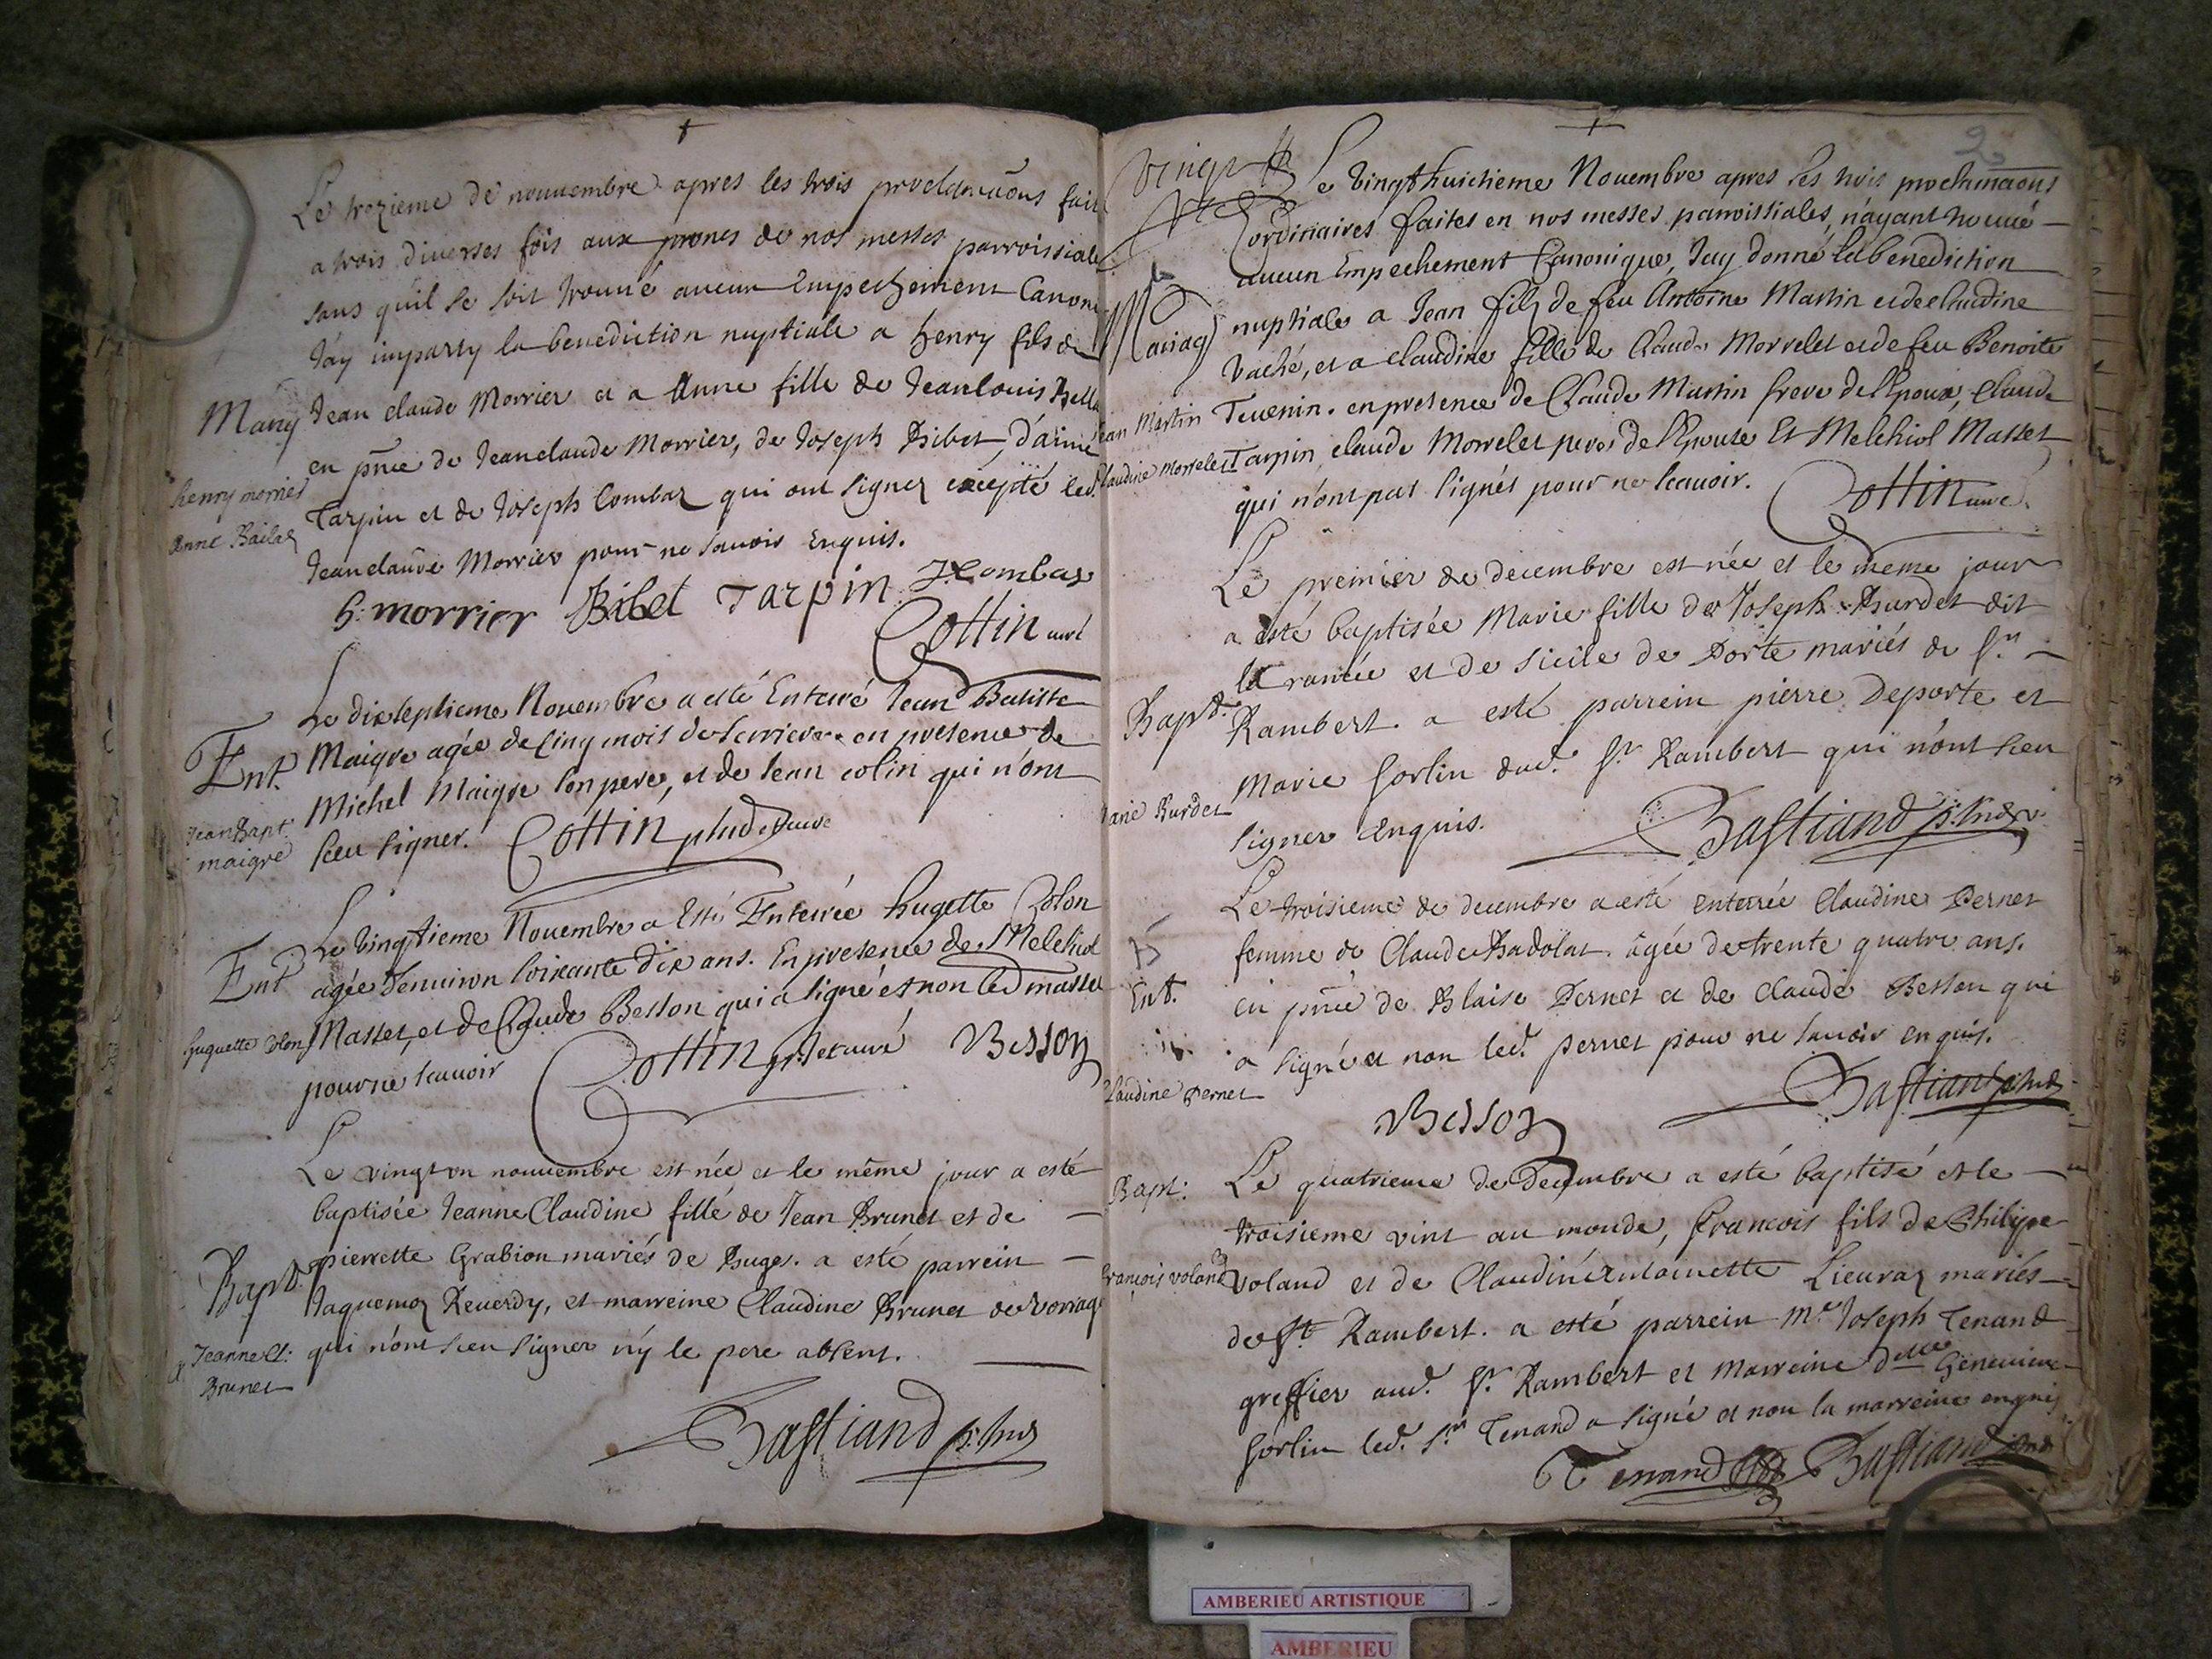 Le trezieme de nouuembre apres les trois proclamaõns fait
a trois diuerses fois aux prones de nos messes parroissiale
sans qu'il se soit trouué aucun Empechement Canoni
J'ay imparty la benediction nuptiale a henry fils de
Mariag Jean claude Morrier et a Anne fille de Jean louis
henry morrier
anne Bailla
en pñce de Jean claude Morrier, de Joseph Bibet, d'aimé
Tarpin et de Joseph Combaz qui ont signez excepté led.
Jean claude Morrier pour ne sauoir Enquis.
h. morrier Bibet Tarpin J. Combaz
Cottin curé
Le dixseptieme Nouembre a esté Enterré Jean Batiste
Ent. Maigre agée de Cinq mois de Serriere en presence de
Michel Maigre son pere, et de Jean colin qui n'ont
Jean Bapt.
maigre
sceu signer. Cottin
Le vingtieme Nouembre a Esté Enterrée hugette Colon
Ent agée d'enuiron soixante dix ans. En presence de Melchiol
huguette Colon Masset, et de Claude Besson qui a signé et non led masset
pour ne scauoir Cottin Besson
Le vingt un nouuembre est née et le même jour a esté
baptisée Jeanne Claudine fille de Jean Brunet et de
Bapt. pierrette Grabion mariés de Buges. a esté parrein
Jaquemoz Reuerdy, et marreine Claudine Brunet de vorrage
Jeanne Cl:
Brunet
qui n'ont sceu signer n'y le pere absent.
Bastiand
2
vingt
Le vingt huictieme Nouembre apres les trois proclamaõns
ordinaires faites en nos messes parroissiales, n'ayant trouué
aucun Empechement Canonique, J'ay donné la benediction
Mariag nuptiale a Jean fils de feu Antoine Martin et de claudine
Vaché, et a claudine fille de Claude Morrelet et de feu Benoite
Jean Martin Teuenin. en presence de Claude Martin frere de l'Epoux, Claude
Claudine Morrelet Tarpin, claude Morrelet pere de l'Epouse Et Melchiol Masset
qui n'ont pas signés pour ne scauoir. Cottin curé
Le premier de decembre est née et le meme jour
a esté baptisée Marie fille de Joseph Burdet dit
la ramée et de Sicile de Porte mariés de St
Bapt. Rambert. a esté parrein pierre Deporte et
Marie Gorlin dud. St Rambert qui n'ont sceu
Marie Burdet
signer Enquis.
Bastiand
Le troisieme de decembre a esté enterrée Claudine Pernet
femme de Claude Badolat. âgée de trente quatre ans.
Ent. en pñce de Blaise Pernet et de Claude Besson qui
a signé et non led. pernet pour ne sauoir enquis.
Claudine Pernet
Besson Bastiand
Bapt: Le quatrieme de Decembre a esté baptisé et le
troisieme vint au monde, francois fils de Philipe
françois voland Voland et de Claudine Antoinette Lieuraz mariés
de St Rambert. a esté parrein Me Joseph Tenand
greffier aud. St Rambert et Marreine Dlle Geneuieue
Gorlin led. Sr Tenand a signé et non la marreine enquis
Tenand Bastiand
AMBERIEU ARTISTIQUE
AMBERIEU